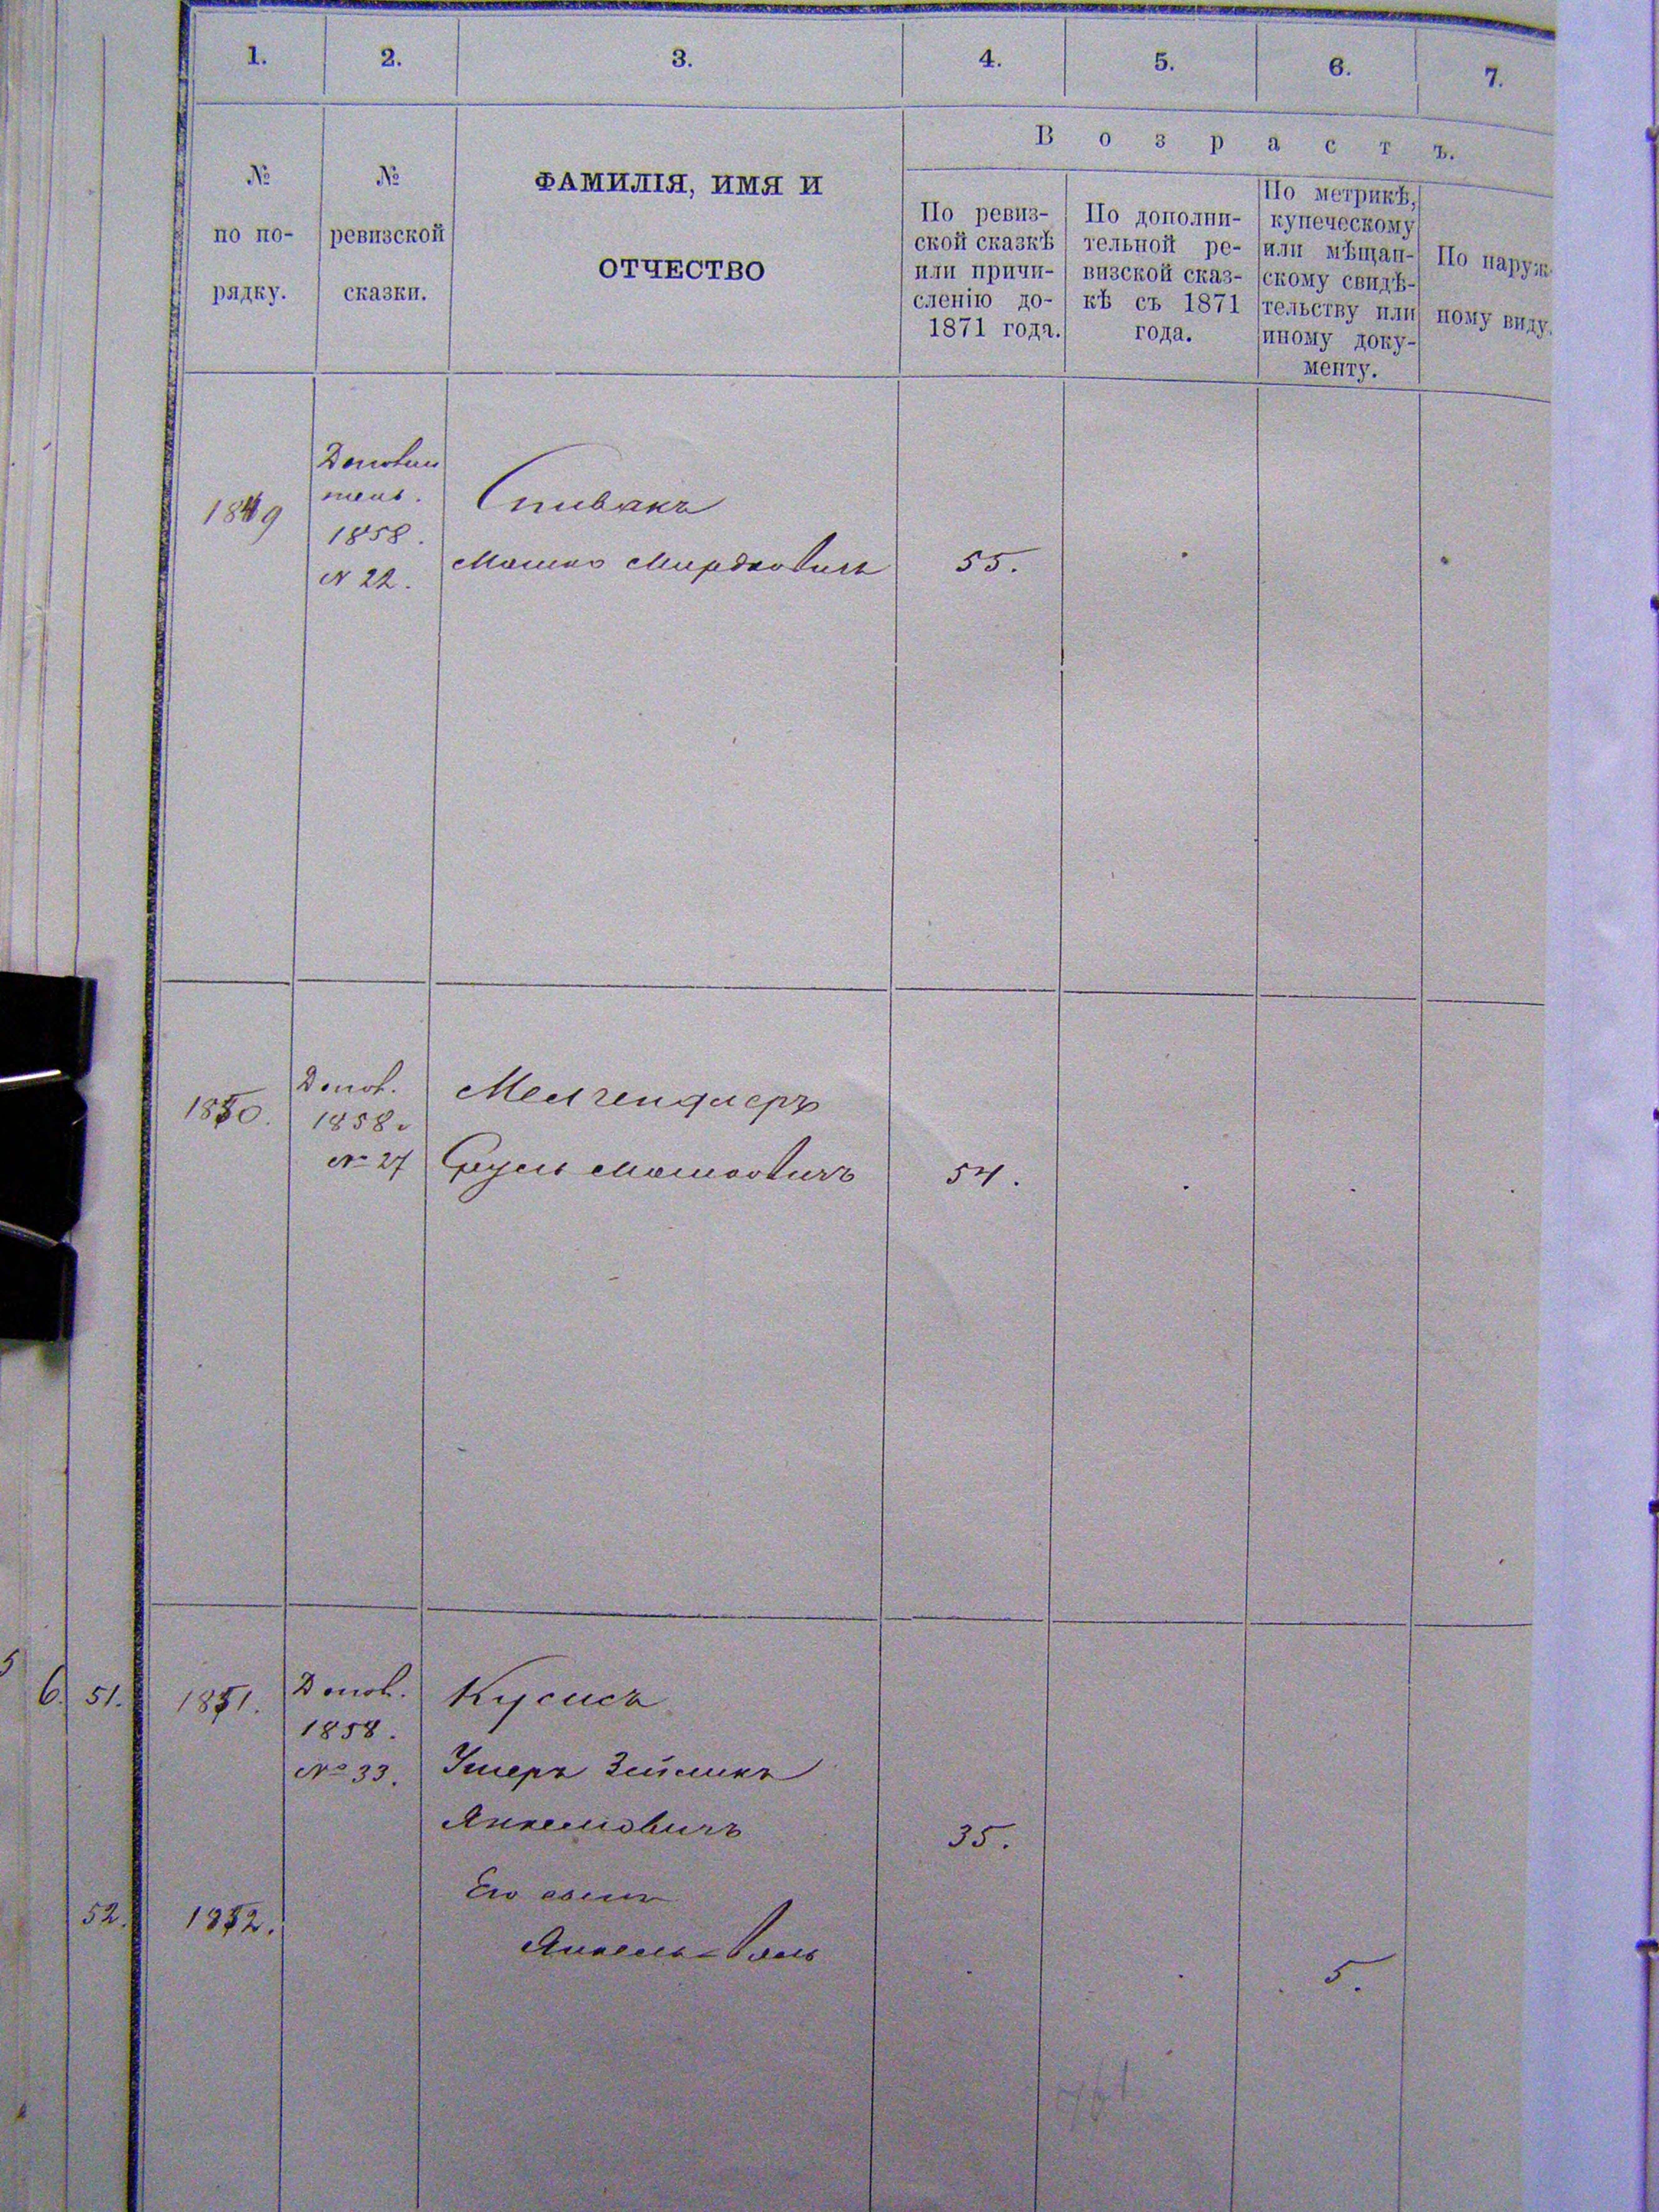 1. 2. 3. 4. 5. 6. 7.
№
по по-
рядку.
№
ревизской
сказки.
ФАМИЛІЯ, ИМЯ И
ОТЧЕСТВО
Возрастъ.
По ревиз-
ской сказкѣ
или причи-
сленію до-
1871 года.
По дополни-
тельной ре-
визской сказ-
кѣ съ 1871
года.
По метрикѣ,
купеческому
или мѣщан-
скому свидѣ-
тельству или
иному доку-
менту.
По наруж-
ному виду.
1849
1858.
N 22.
Спивакъ
Мошко Мордковичъ
55.
1850.
1858
№ 27
Срулъ Мошковичъ
54.
6. 51. 1851.
1858.
№ 33.
Кусисъ
Ушеръ Зейликъ
Янкелювичъ
35.
52. 1852.
Его сынъ
Янкель-
5.